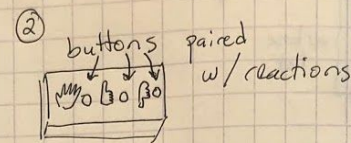 ②
buttons paired
w/ reactions